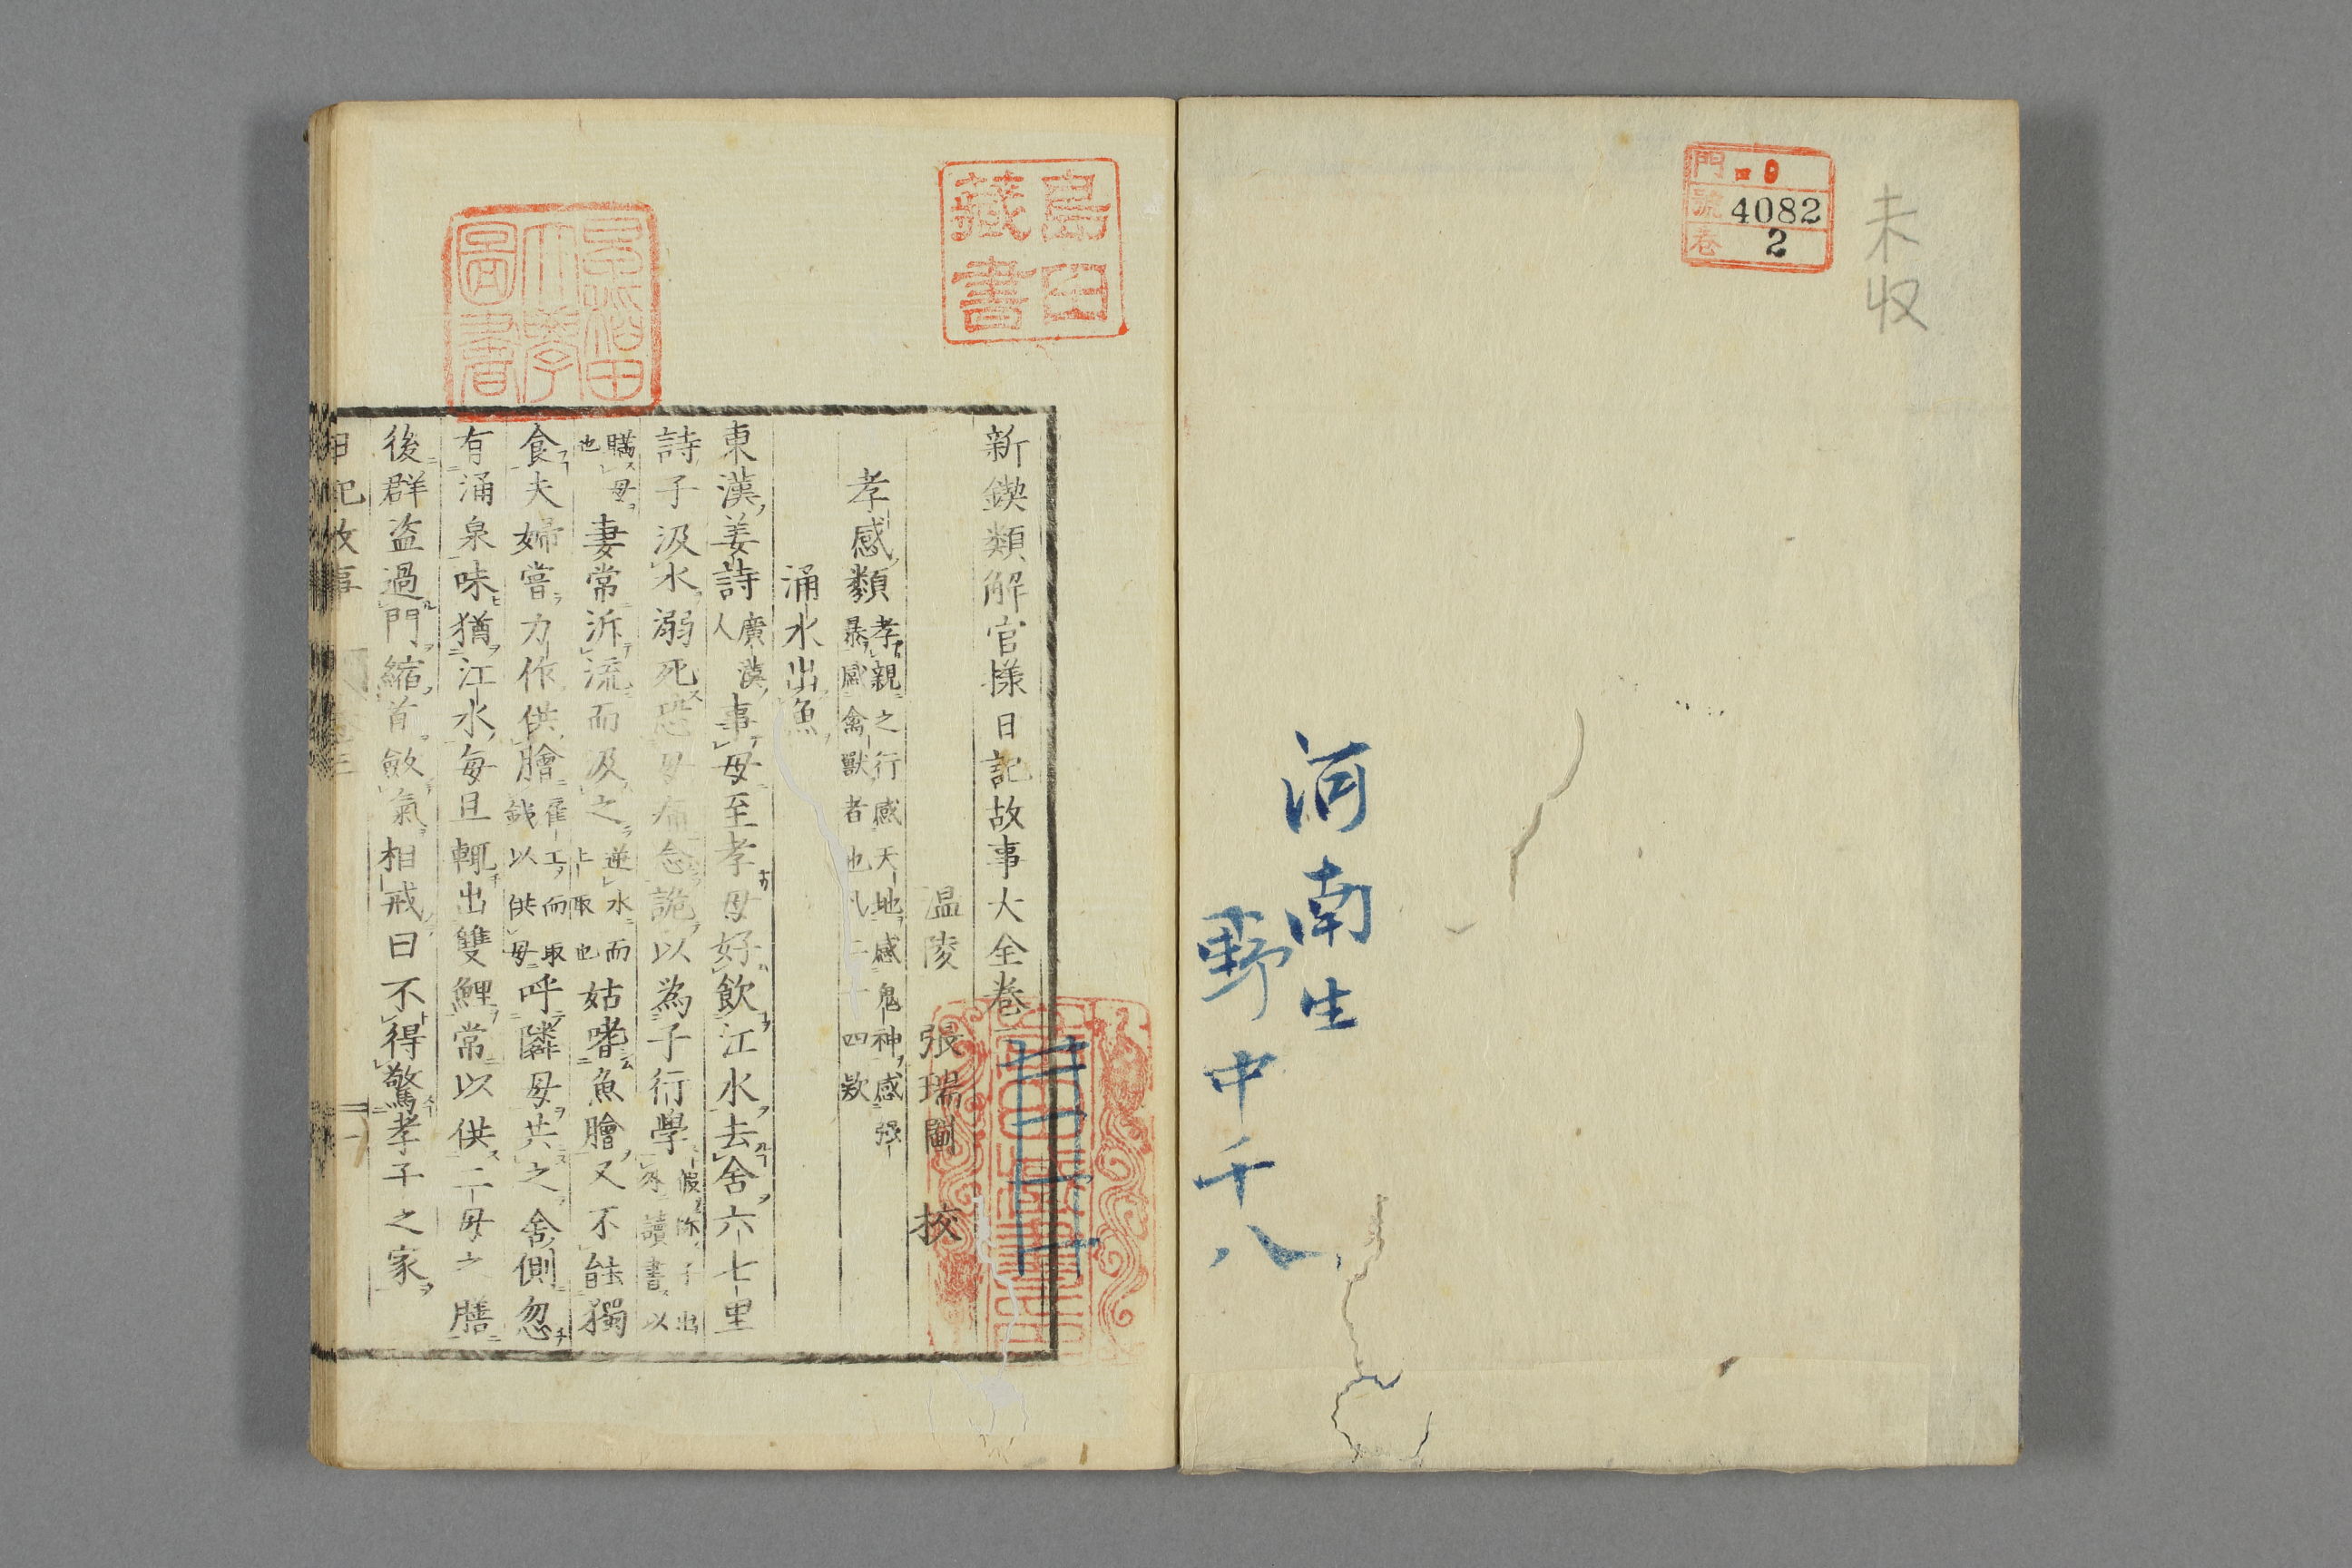 未収
門 四 9
號 4082
卷 2
河南生
野中千八
島田
藏書
早稲田
大學
圖書
新鍥類解官様日記故事大全卷
温陵 張瑞圖 挍
孝感類 孝親之行感天地感鬼神感強
暴感禽獸者也凡二十四欵
涌水出魚
東漢姜詩 廣漢
人 事母至孝母好飲江水去舍六七里
詩子汲水溺死恐母痛念詭以為子行學 假称子出
外讀書以
購母
也 妻常泝流而汲之 逆水而
上取也 姑嗜魚膾又不能獨
食夫婦嘗力作供膾 雇工而取
錢以供母 呼隣母共之舍側忽
有涌泉味猶江水毎旦輒出雙鯉常以供二母之膳
後群盗過門縮首斂氣相戒曰不得驚孝子之家
日記故事 三 一